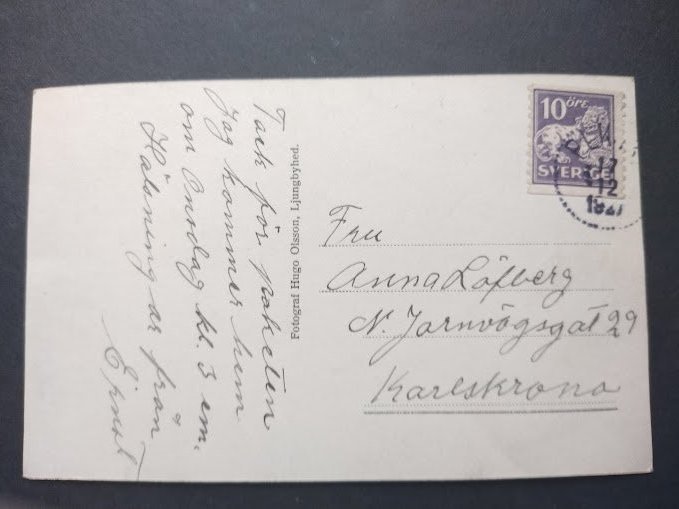 Tack för paketen
Jag kommer hem
om Onsdag kl. 3 em.
Hälsningar från
Ernst
Fotograf Hugo Olsson, Ljungbyhed.
10 ÖRE
SVERIGE
17
12
Fru
Anna Löfberg
N. Jarnvögsgat 29
Karlskrona